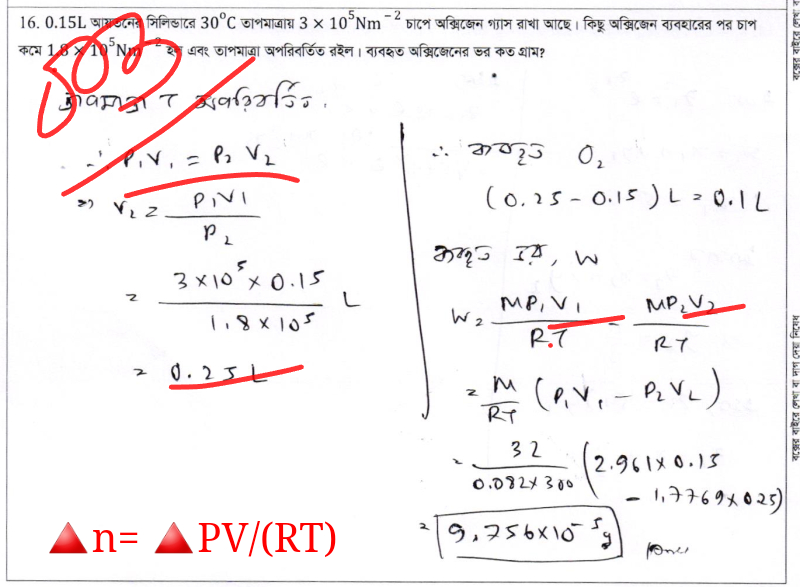 16. 0.15L আয়তনের সিলিন্ডারে 30°C তাপমাত্রায় 3 × 10⁵Nm⁻² চাপে অক্সিজেন গ্যাস রাখা আছে। কিছু অক্সিজেন ব্যবহারের পর চাপ
কমে 1.8 × 10⁵Nm⁻² হল এবং তাপমাত্রা অপরিবর্তিত রইল। ব্যবহৃত অক্সিজেনের ভর কত গ্রাম?
তাপমাত্রা T অপরিবর্তিত,
∴ P₁V₁ = P₂V₂
⇒ V₂ = P₁V₁ / P₂
= 3×10⁵ × 0.15 / 1.8×10⁵ L
= 0.25 L
∴ ব্যবহৃত O₂
(0.25 - 0.15) L = 0.1 L
ব্যবহৃত ভর, W
W = MP₁V₁ / RT - MP₂V₂ / RT
= M / RT (P₁V₁ - P₂V₂)
= 32 / 0.082×300 (2.961×0.15
- 1.7769×0.25)
= 9.756×10⁻⁵ g
▲n= ▲PV/(RT)